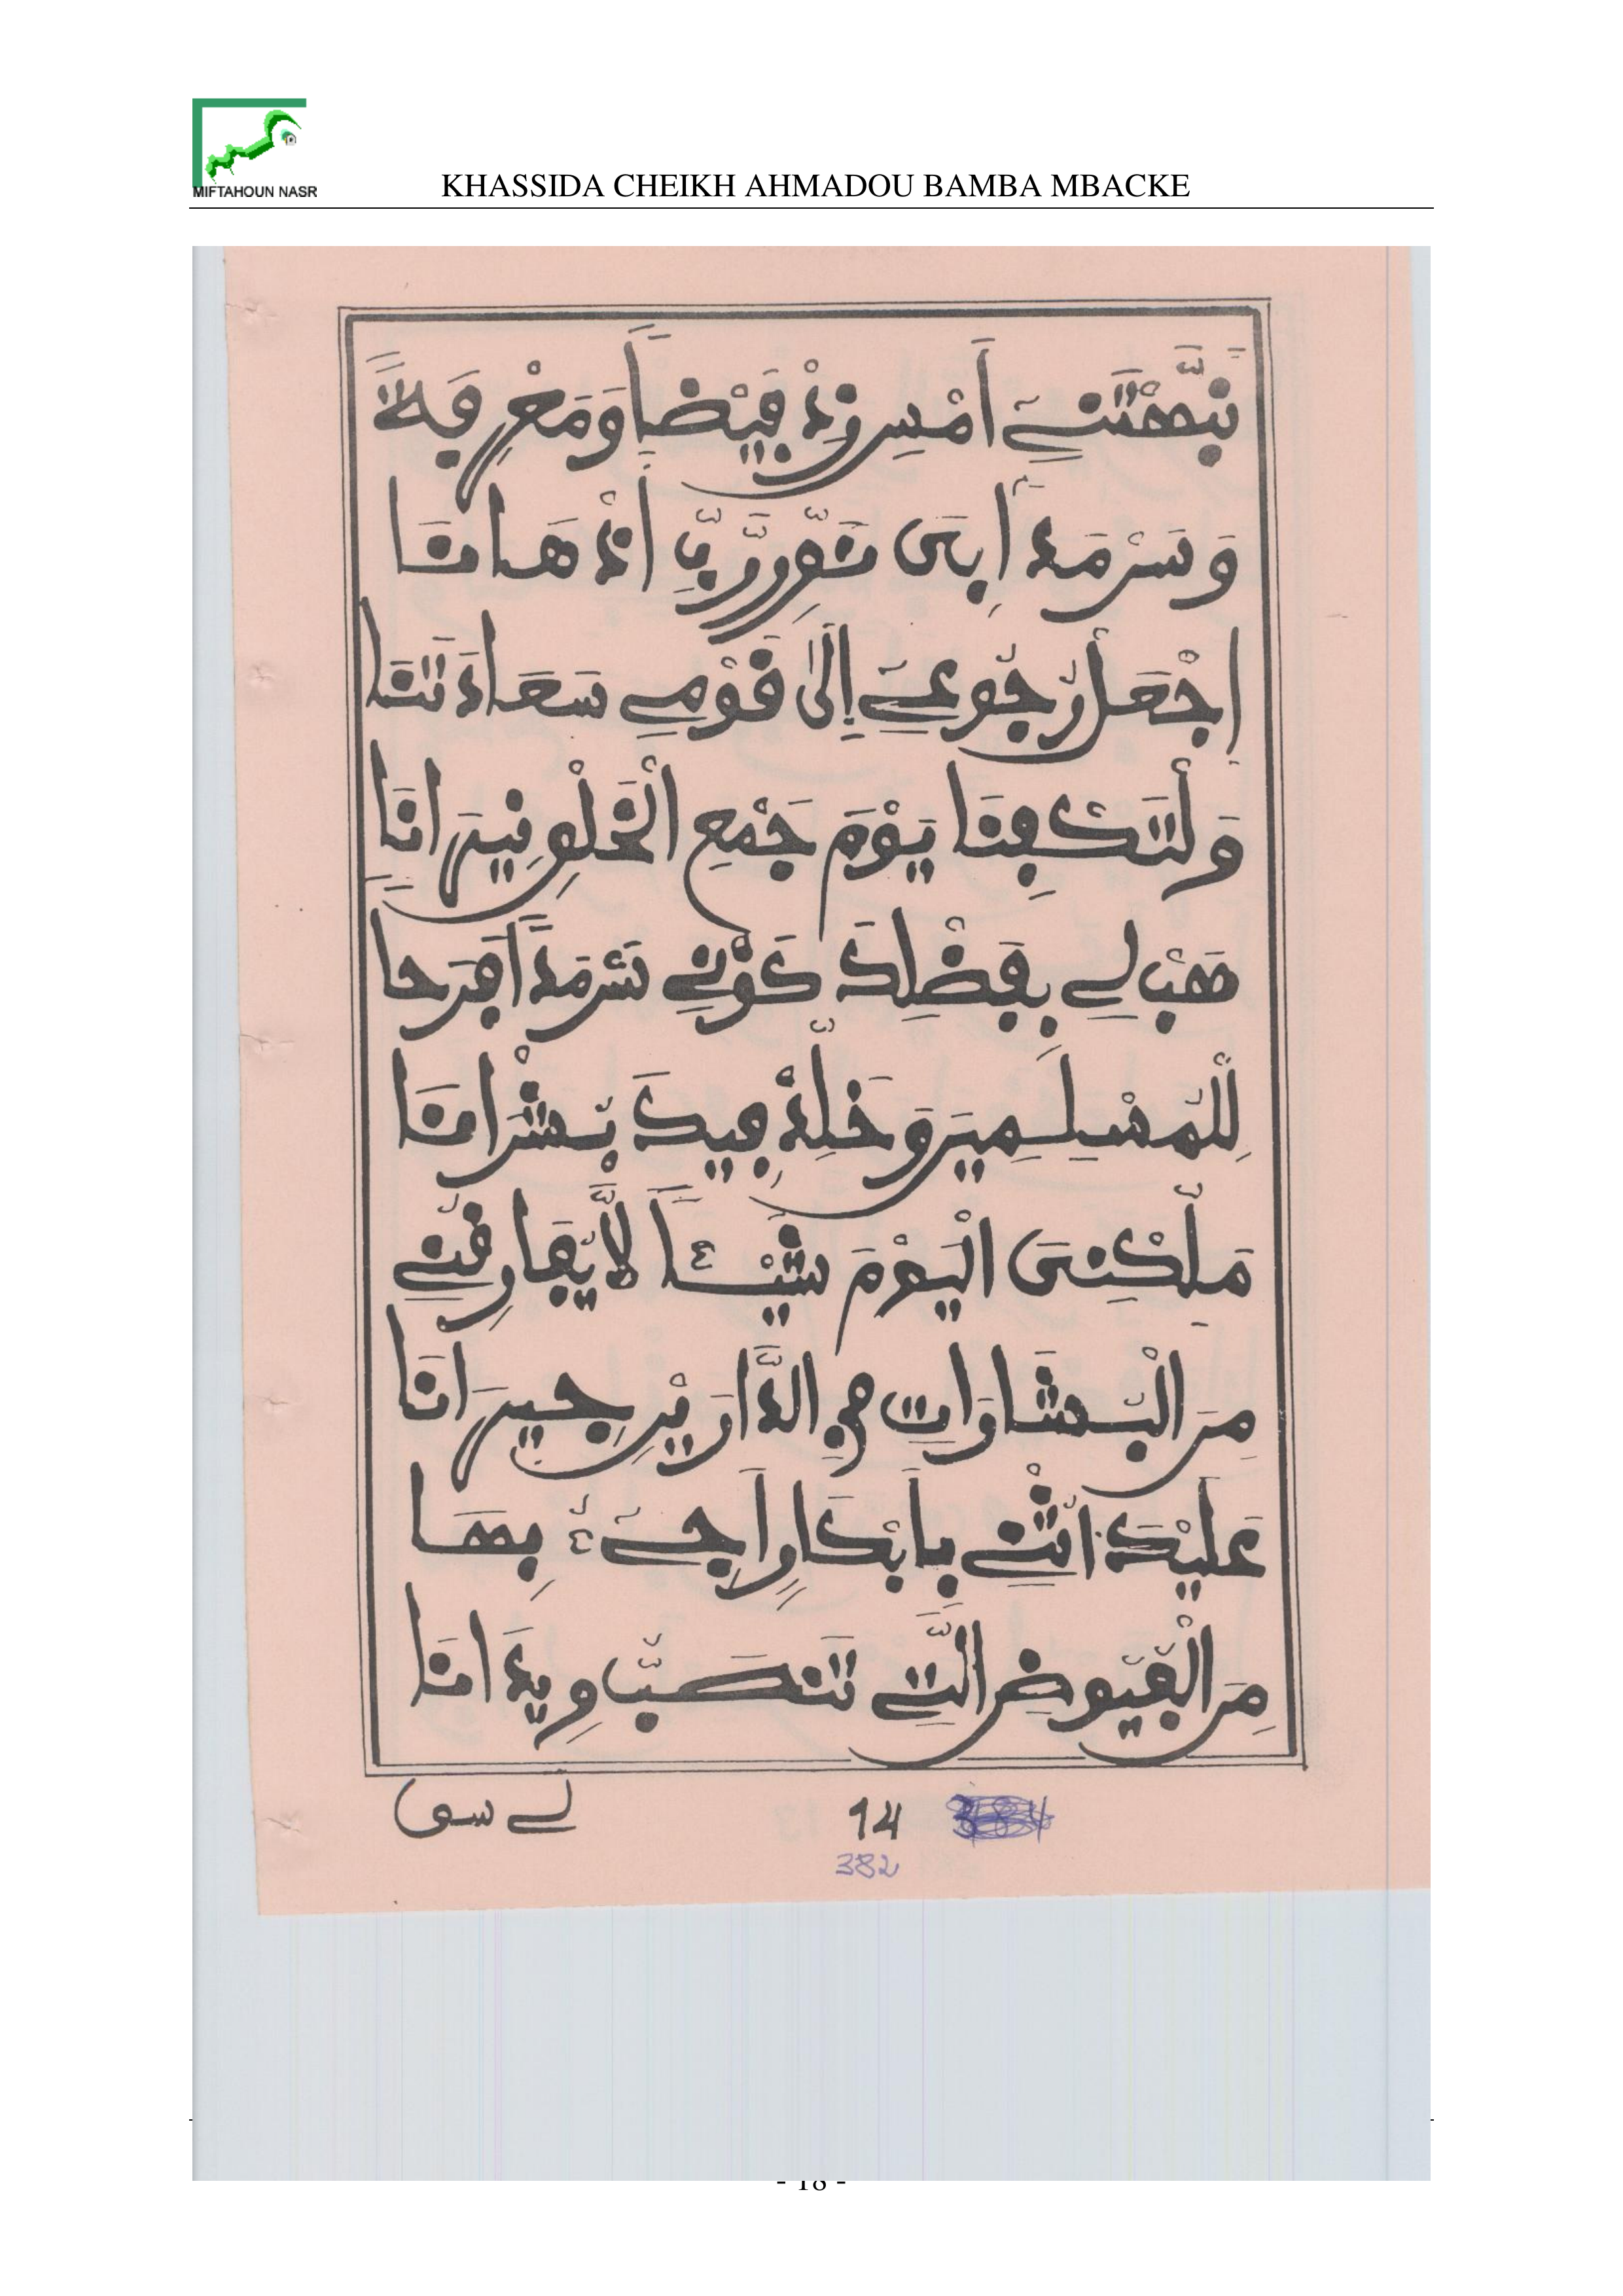 MIFTAHOUN NASR
KHASSIDA CHEIKH AHMADOU BAMBA MBACKE
نَبَّهْتَنِي أَمْسِ زِدْ فَيْضاً وَمَعْرِفَةً
وَسَرْمَداً
اِجْعَلْ رُجُوعِيَ إِلَى قَوْمِي سَعَادَتَنَا
وَلْتَكْفِنَا يَوْمَ جَمْعِ الْخَلْقِ نِيرَانَا
هَبْ لِي بِفَضْلِكَ كَوْنِي سَرْمَداً فَرَحا
لِلْمُسْلِمِينَ وَخَلِّدْ فِيكَ بُشْرَانَا
مَلِّكْنِيَ الْيَوْمَ شَيْئاً لَا يُفَارِقُنِي
مِنَ الْبِشَارَاتِ فِي الدَّارَيْنِ جِيرَانَا
عَلَيْكَ أُثْنِي بِأَبْكَارٍ أَجِيءُ بِهَا
مِنَ الْفُيُوضِ الَّتِي تَنْصَبُّ وِيدَانَا
لي سوى
14
382
- 18 -